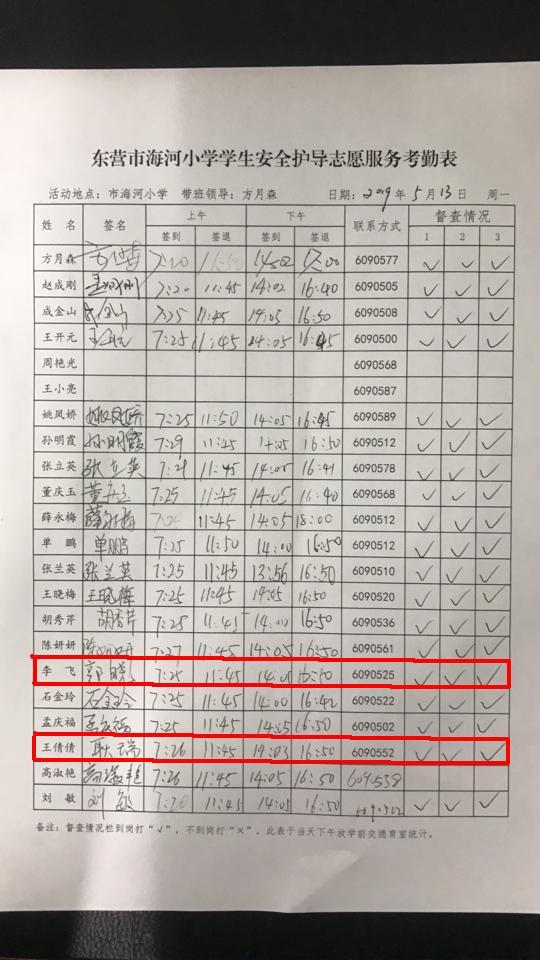 东营市海河小学学生安全护导志愿服务考勤表
活动地点：市海河小学 带班领导：方月森 日期：2019年5月13日 周一
姓名 签名 上午 下午 联系方式 督查情况
签到 签退 签到 签退 1 2 3
方月森 7:20 14:02 17:00 6090577 ✓ ✓ ✓
赵成刚 赵成刚 7:20 11:45 14:02 16:40 6090505 ✓ ✓ ✓
成金山 成金山 7:25 11:45 14:05 16:50 6090512 ✓ ✓ ✓
王开元 7:25 11:45 14:05 16:45 6090500 ✓ ✓ ✓
周艳光 6090568
王小亮 6090587
姚凤娇 姚凤娇 7:25 11:50 14:05 16:45 6090589 ✓ ✓ ✓
孙明霞 孙明霞 7:29 11:45 14:05 16:50 6090512 ✓ ✓ ✓
张立英 张立英 7:21 11:45 14:05 16:41 6090578 ✓ ✓ ✓
董庆玉 董庆玉 7:25 11:45 14:05 16:40 6090568 ✓ ✓ ✓
薛永梅 薛永梅 7:25 11:45 14:05 18:00 6090512 ✓ ✓ ✓
单鹏 单鹏 7:25 11:50 14:00 16:50 6090512 ✓ ✓ ✓
张兰英 张兰英 7:25 11:45 13:56 16:50 6090510 ✓ ✓ ✓
王晓梅 王晓梅 7:25 11:45 14:05 16:50 6090520 ✓ ✓ ✓
胡秀芹 胡秀芹 7:25 11:45 14:00 16:50 6090536 ✓ ✓ ✓
陈妍妍 陈妍妍 7:27 11:45 14:05 16:50 6090561 ✓ ✓ ✓
李飞 郭晓 7:25 11:45 14:05 16:50 6090525 ✓ ✓ ✓
石金玲 石金玲 7:25 11:45 14:00 16:42 6090522 ✓ ✓ ✓
孟庆福 孟庆福 7:25 11:45 14:05 16:50 6090502 ✓ ✓ ✓
王倩倩 耿瑞 7:26 11:45 14:03 16:50 6090552 ✓ ✓ ✓
高淑艳 高淑艳 7:26 11:45 14:05 16:50 6090538 ✓ ✓ ✓
刘敏 刘敏 7:20 11:45 14:05 16:50 ✓ ✓ ✓
备注：督查情况栏到岗打“√”，不到岗打“×”，此表于当天下午放学前交德育室统计。